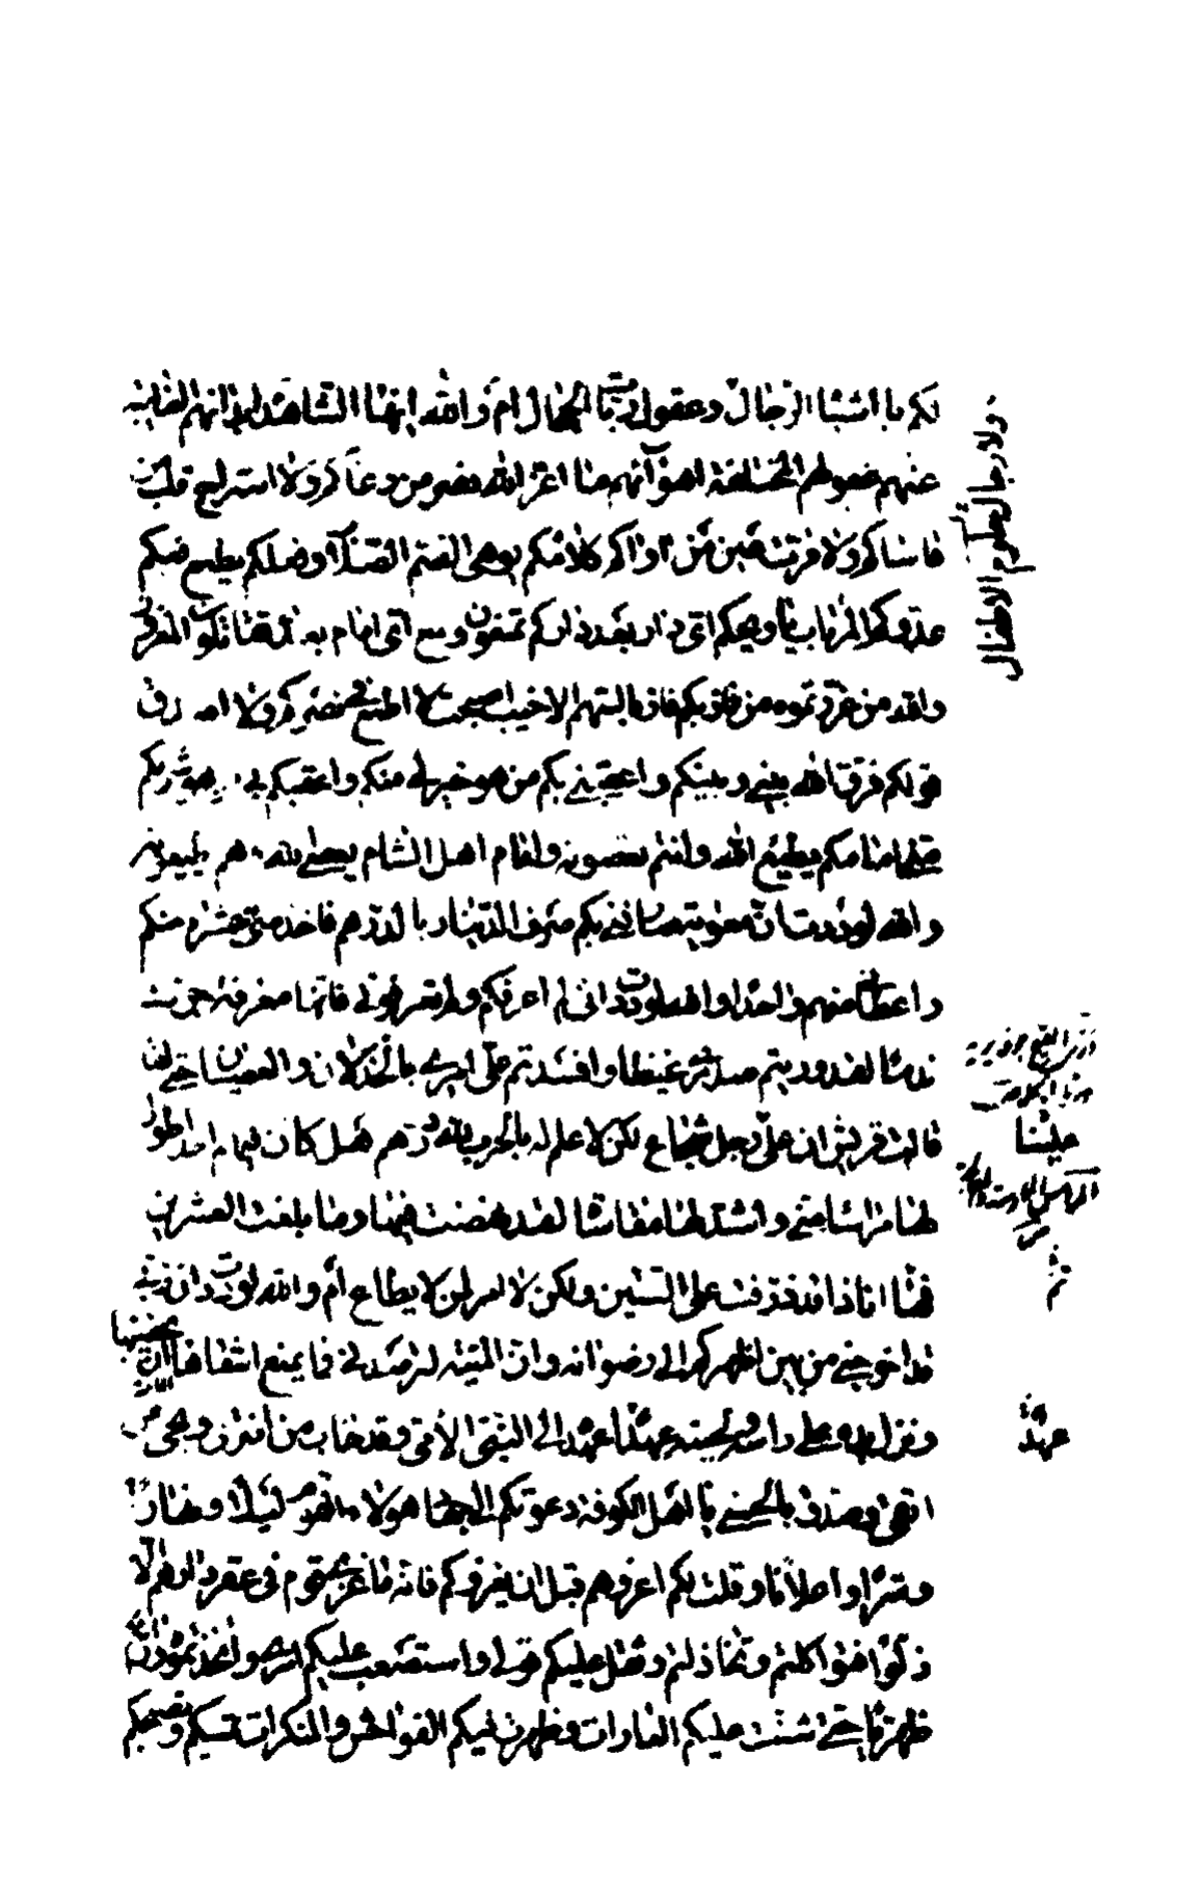 لكم يا اشباه الرجال وعقول ربات الحجال ام والله ايها الشاهدة ابدانهم الغايبة
عنهم عقولهم المختلفة اهوآئهم ما اعز الله نصر من دعاكم ولا استراح قلب من
قاساكم ولا قرت عين من اواكم كلامكم يوهى الصم الصلاب وفعلكم يطمع فيكم
عدوكم المرتاب يا ويحكم اى دار بعد داركم تمنعون ومع اى امام بعدى تقاتلون المغرور
والله من غررتموه من فازبكم فاز بالسهم الاخيب اصبحت لا اطمع فى نصركم ولا اصدق
قولكم فرق الله بينى وبينكم واعقبنى بكم من هو خير لى منكم واعقبكم بى
امامكم يطيع الله وانتم تعصونه وامام اهل الشام يعصى الله وهم يطيعونه
والله لوددت ان معوية صارفنى بكم صرف الدينار بالدرهم فاخذ منى عشرة منكم
واعطانى منهم واحدا والله لوددت انى لم اعرفكم ولم تعرفونى فانها معرفة جرت
ندما لقد وريتم صدرى غيظا وافسدتم على امرى بالخذلان والعصيان حتى لقد
قالت قريش ان على رجل شجاع لكن لا علم له بالحرب لله درهم هل كان فيهم احد اطول
لها مراسا منى واشد لها مقاساة لقد نهضت فيها وما بلغت العشرين
فها انا ذا قد ذرفت على الستين ولكن لا امر لمن لا يطاع ام والله لوددت ان ربى
قد اخرجنى من بين اظهركم الى رضوانه وان المنية لترصدنى فما يمنع اشقاها ان
يخضبها
ونزل يده على راسه ولحيته عهدا عهده الى النبى الامى وقد خاب من افترى ونجى من
اتقى وصدق بالحسنى يا اهل الكوفة دعوتكم الى جهاد هؤلاء القوم ليلا ونهارا
وسرا واعلانا وقلت لكم اغزوهم قبل ان يغزوكم فانه ما غزى قوم فى عقر دارهم الا
ذلوا فتواكلتم وتخاذلتم وثقل عليكم قولى واستصعب عليكم امرى واتخذتموه ورآءكم
ظهريا حتى شنت عليكم الغارات وظهرت فيكم الفواحش والمنكرات تمسيكم وتصبحكم
ولا ربا لعلم الاطفال
علينا
عهدا